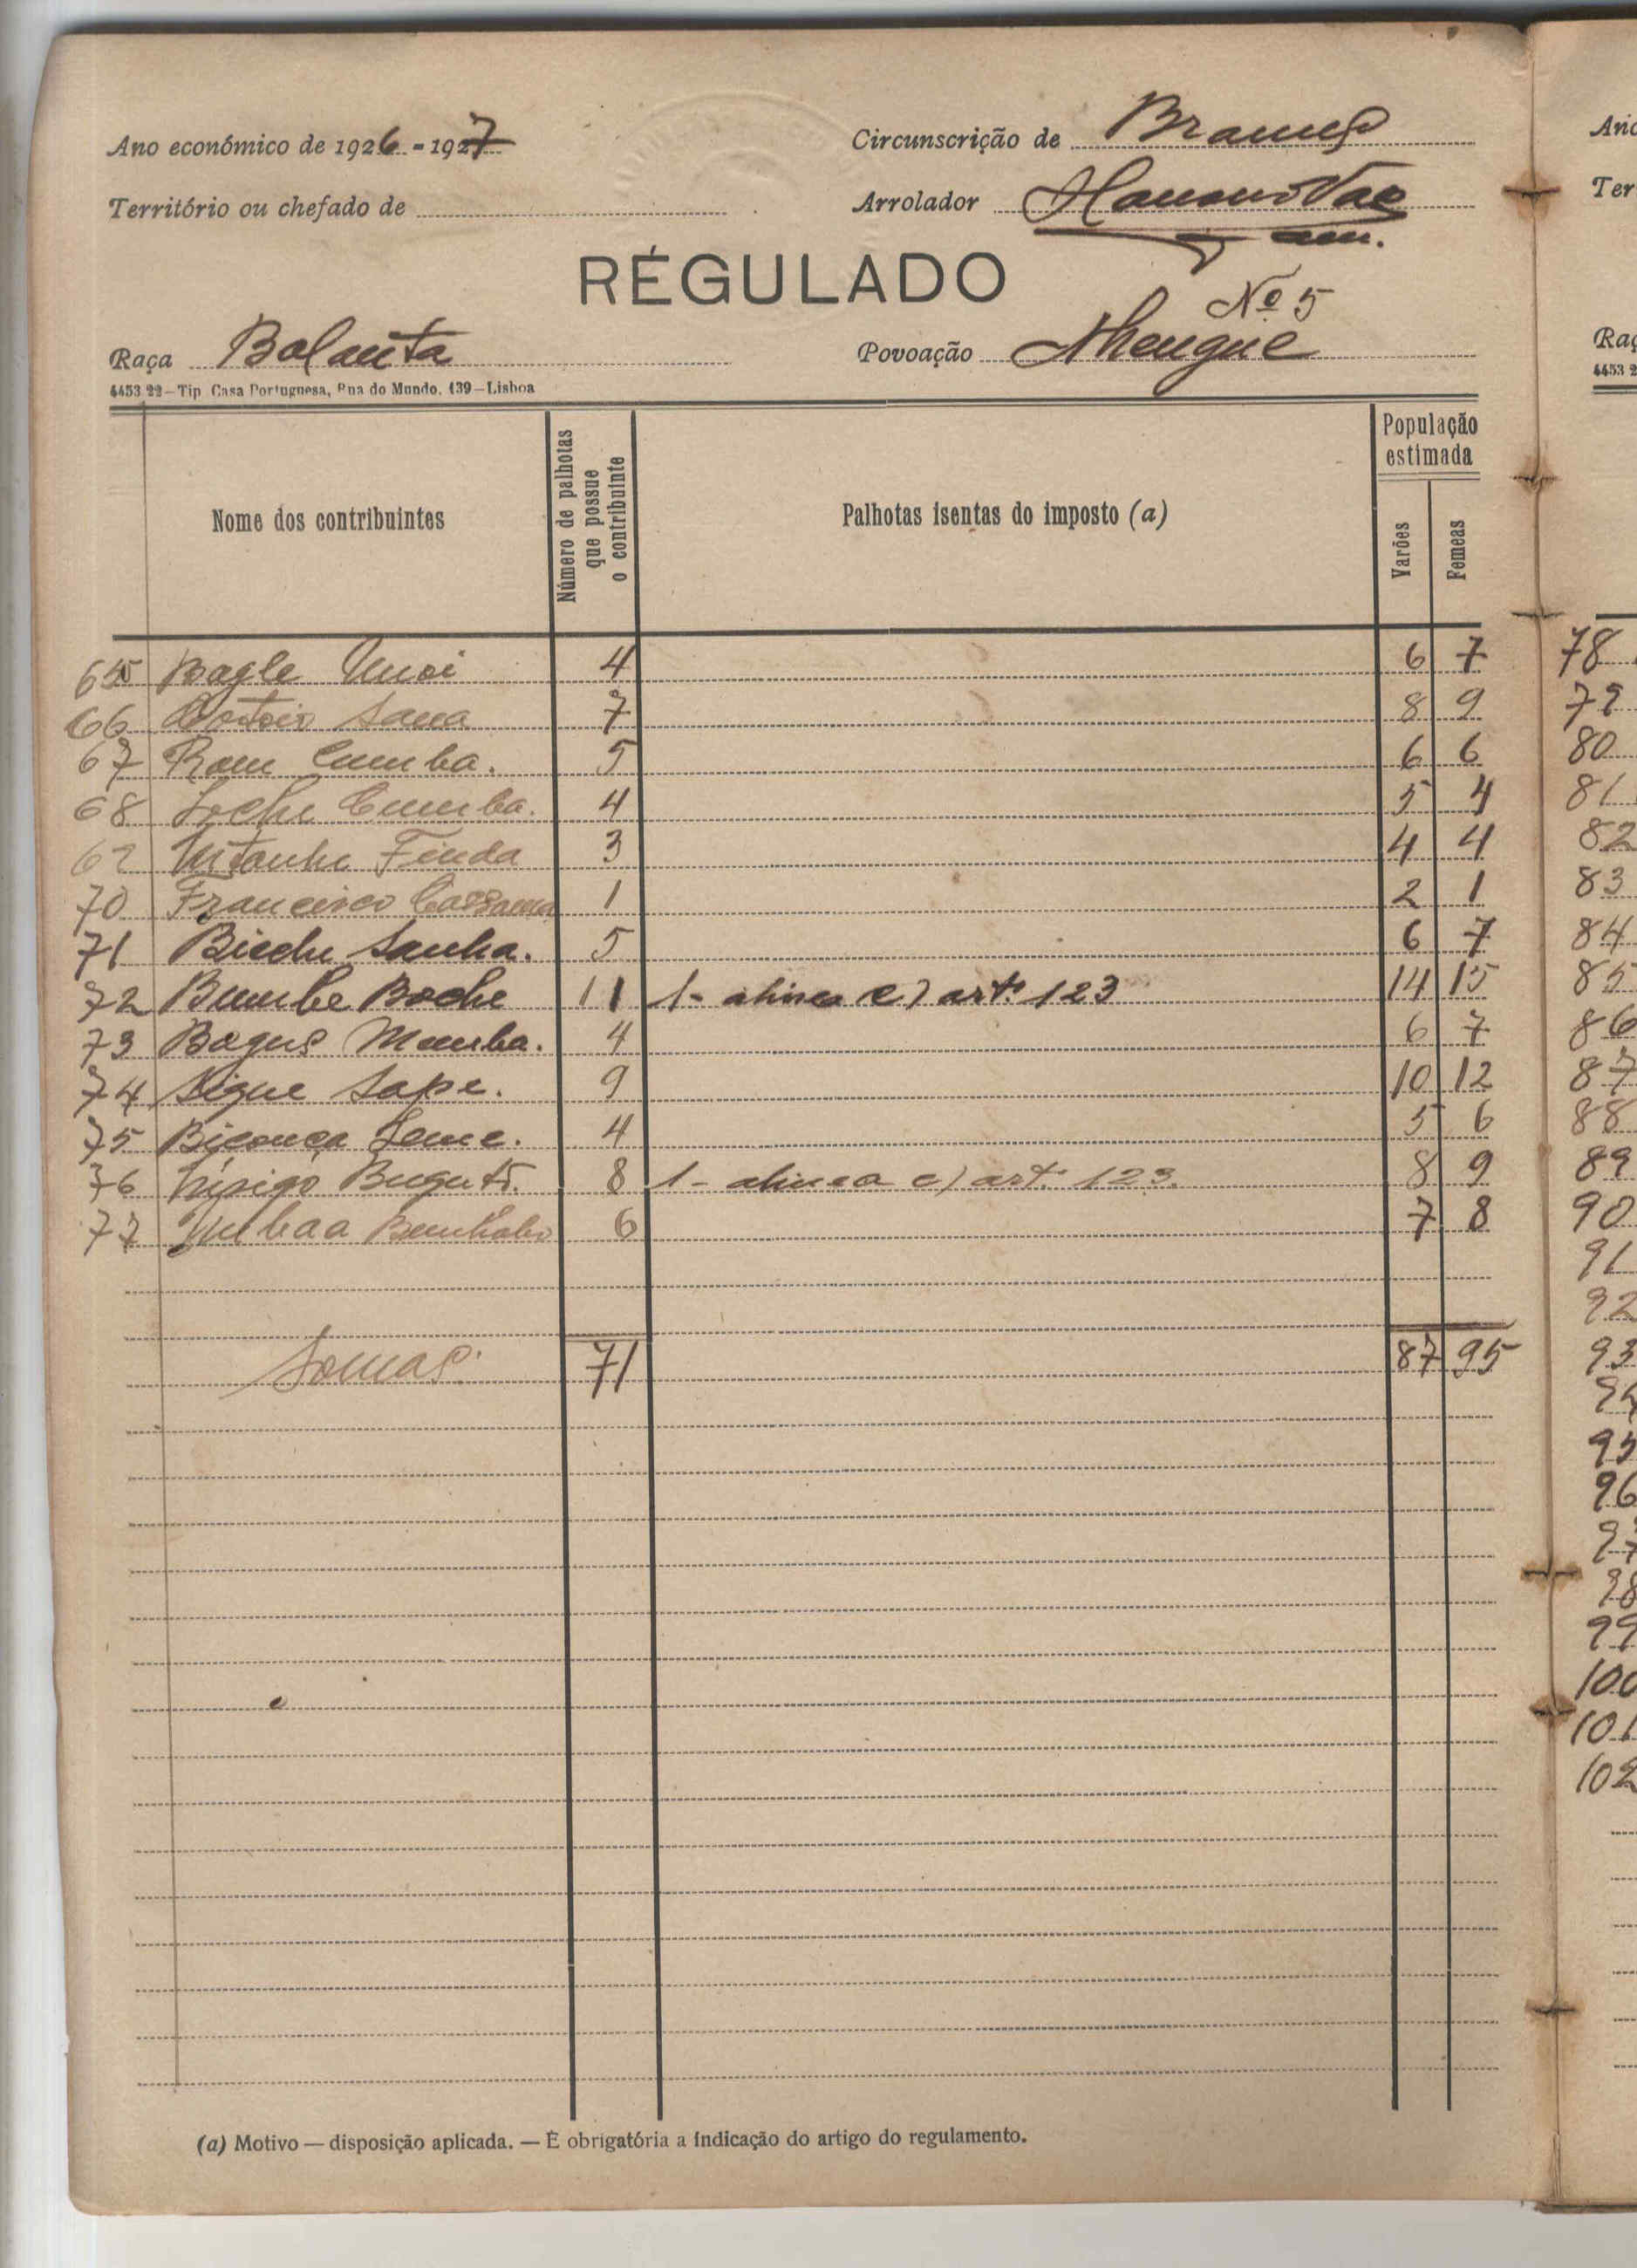 Ano económico de 1926 - 1927
Circunscrição de Brames
Território ou chefado de
Arrolador
RÉGULADO
Nº 5
Raça Balanta
Povoação Nhengue
4453 22—Tip Casa Portuguesa, Rua do Mundo, 139—Lisboa
Nome dos contribuintes
Número de palhotas que possue o contribuinte
Palhotas isentas do imposto (a)
População estimada
Varões
Femeas
65 Bagle 4 6 7
66 Sana 7 8 9
67 Ram Cumba. 5 6 6
68 Cumba. 4 5 4
69 Finda 3 4 4
70 Francisco Cassama 1 2 1
71 Bieche Sanha. 5 6 7
72 Bumbe Boche 11 1- alinea c) artº 123 14 15
73 Bagus Mamba. 4 6 7
74 Sigue Sape. 9 10 12
75 Biçonça 4 5 6
76 8 1- alinea c) artº 123. 8 9
77 6 7 8
Somas: 71 87 95
(a) Motivo — disposição aplicada. — É obrigatória a indicação do artigo do regulamento.
Ter
Raç
4453 2
78
79
80
81
82
83
84
85
86
87
88
89
90
91
92
93
94
95
96
97
98
99
100
101
102